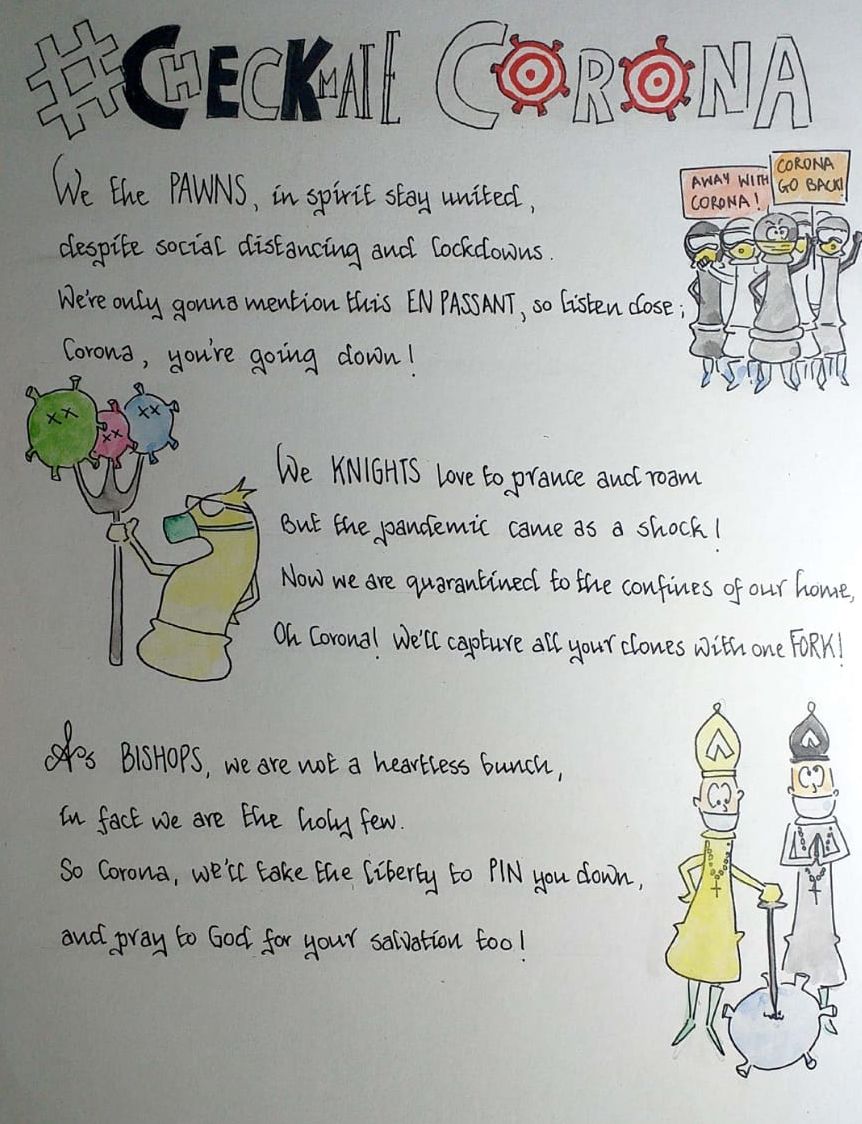 #CHECKMATE CORONA
We the PAWNS, in spirit stay united,
despite social distancing and lockdowns.
We're only gonna mention this EN PASSANT, so listen close;
Corona, you're going down!
AWAY WITH
CORONA!
CORONA
GO BACK!
We KNIGHTS love to prance and roam
But the pandemic came as a shock!
Now we are quarantined to the confines of our home,
Oh Corona! We'll capture all your clones with one FORK!
As BISHOPS, we are not a heartless bunch,
in fact we are the holy few.
So Corona, we'll take the liberty to PIN you down,
and pray to God for your salvation too!